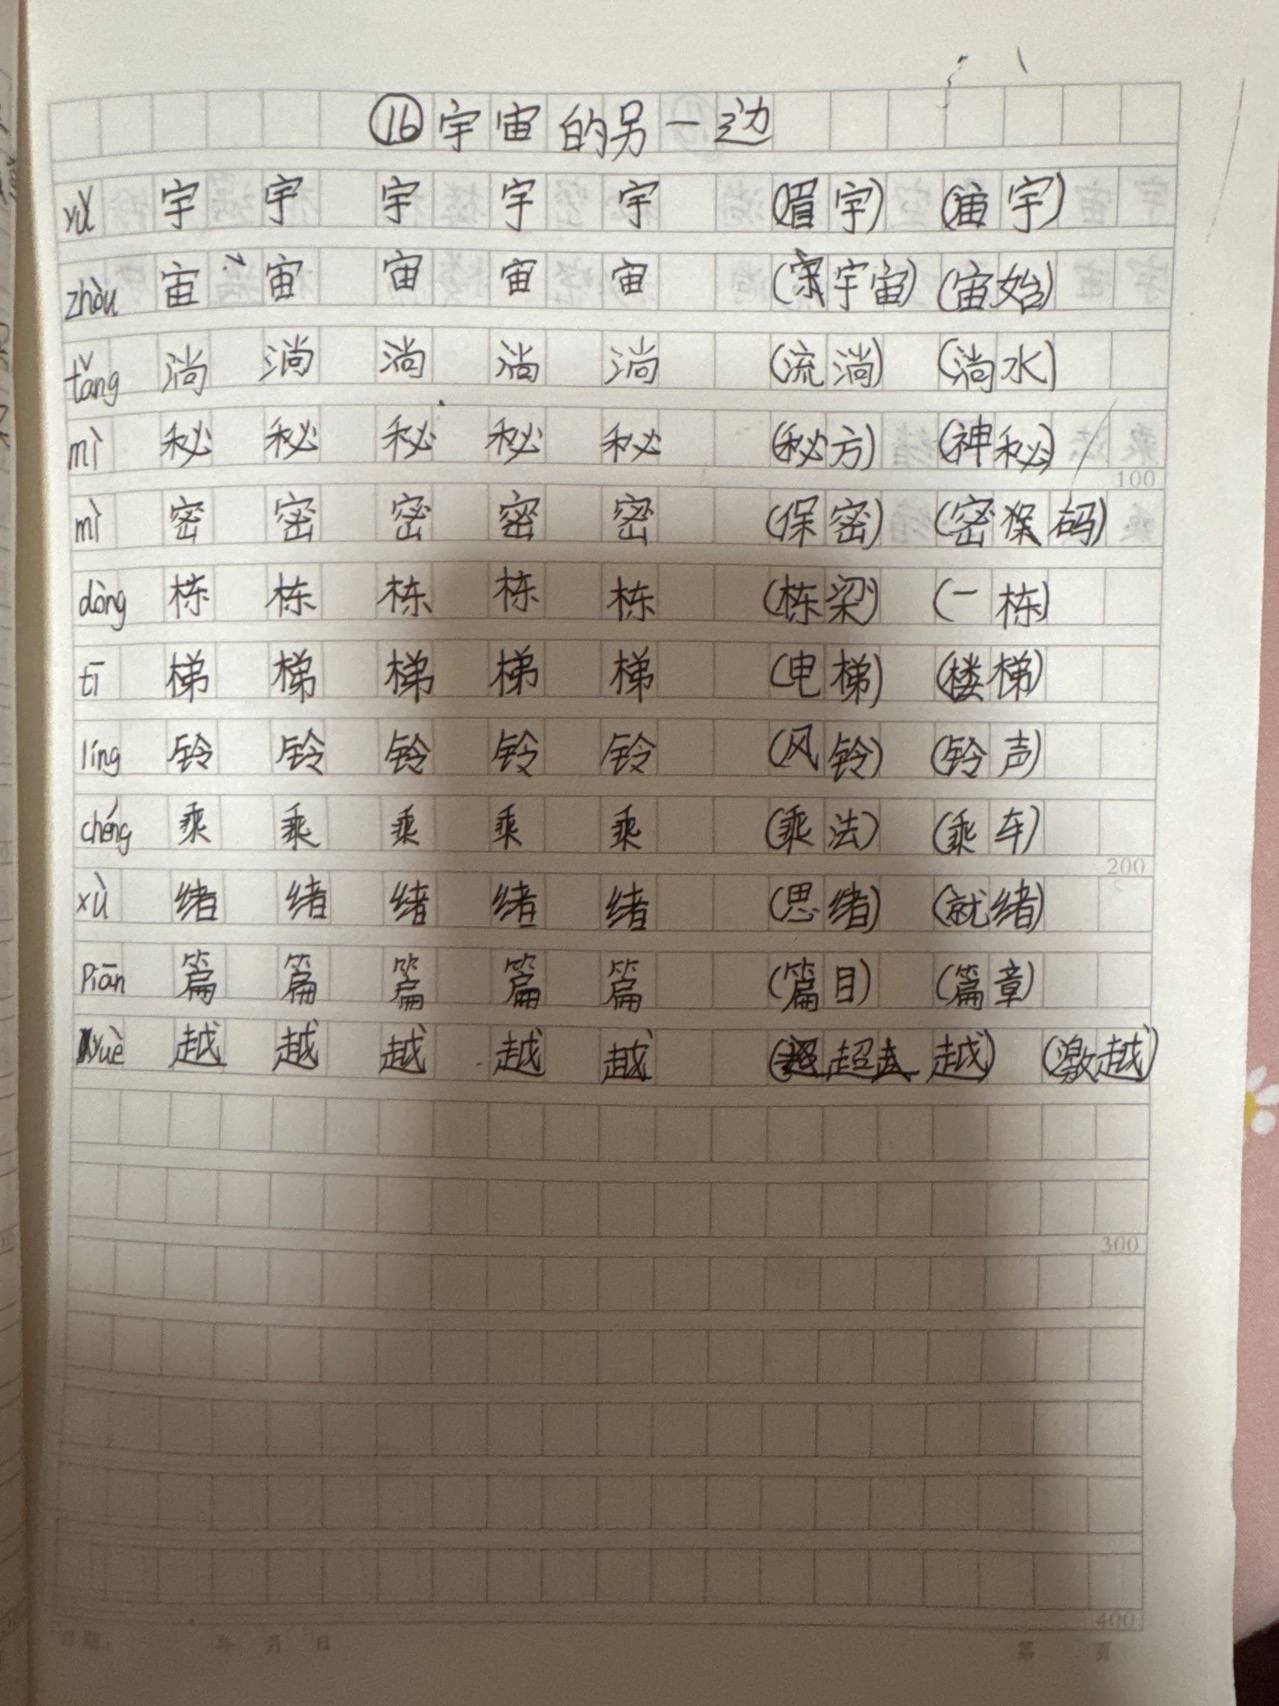 ⑯宇宙的另一边
yǔ 宇 宇 宇 宇 宇 (眉宇) (宙宇)
zhòu 宙 宙 宙 宙 宙 (宇宙) (宙始)
tǎng 淌 淌 淌 淌 淌 (流淌) (淌水)
mì 秘 秘 秘 秘 秘 (秘方) (神秘)
100
mì 密 密 密 密 密 (保密) (密码)
dòng 栋 栋 栋 栋 栋 (栋梁) (一栋)
tī 梯 梯 梯 梯 梯 (电梯) (楼梯)
líng 铃 铃 铃 铃 铃 (风铃) (铃声)
chéng 乘 乘 乘 乘 乘 (乘法) (乘车)
200
xù 绪 绪 绪 绪 绪 (思绪) (就绪)
Piān 篇 篇 篇 篇 篇 (篇目) (篇章)
yuè 越 越 越 越 越 (超越) (激越)
300
400
日期: 年 月 日 第 页